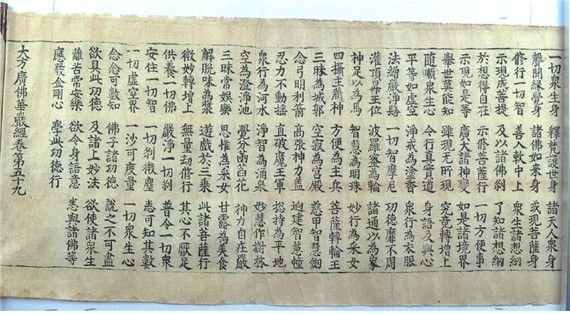 一切眾生身 釋梵護世身 諸天人眾身
聲聞緣覺身 諸佛如來身 或現菩薩身
修行一切智 善入軟中上 眾生諸想網
示現成菩提 及以諸佛剎 了知諸想網
於想得自在 示修菩薩行 一切方便事
示現如是等 廣大諸神變 如是諸境界
舉世莫能知 雖現無所現 究竟轉增上
隨順眾生心 令行真實道 身語及與心
平等如虛空 淨戒為塗香 眾行為衣服
法繒嚴淨髻 一切智摩尼 功德靡不周
灌頂昇王位 波羅蜜為輪 諸通以為象
神足以為馬 智慧為明珠 妙行為采女
四攝主藏神 方便為主兵 菩薩轉輪王
三昧為城郭 空寂為宮殿 慈甲智慧劍
念弓明利箭 高張神力蓋 迥建智慧幢
忍力不動搖 直破魔王軍 總持為平地
眾行為河水 淨智為涌泉 妙慧作樹林
空為澄淨池 覺分菡萏花 神力自莊嚴
三昧常娛樂 思惟為采女 甘露為美食
解脫味為漿 遊戲於三乘 此諸菩薩行
微妙轉增上 無量劫修行 其心不厭足
供養一切佛 嚴淨一切剎 普令一切眾
安住一切智 一切剎微塵 悉可知其數
一切虛空界 一沙可度量 一切眾生心
念念可數知 佛子諸功德 說之不可盡
欲具此功德 及諸上妙法 欲使諸眾生
離苦常安樂 欲令身語意 悉與諸佛等
應發金剛心 學此功德行
大方廣佛華嚴經卷第五十九